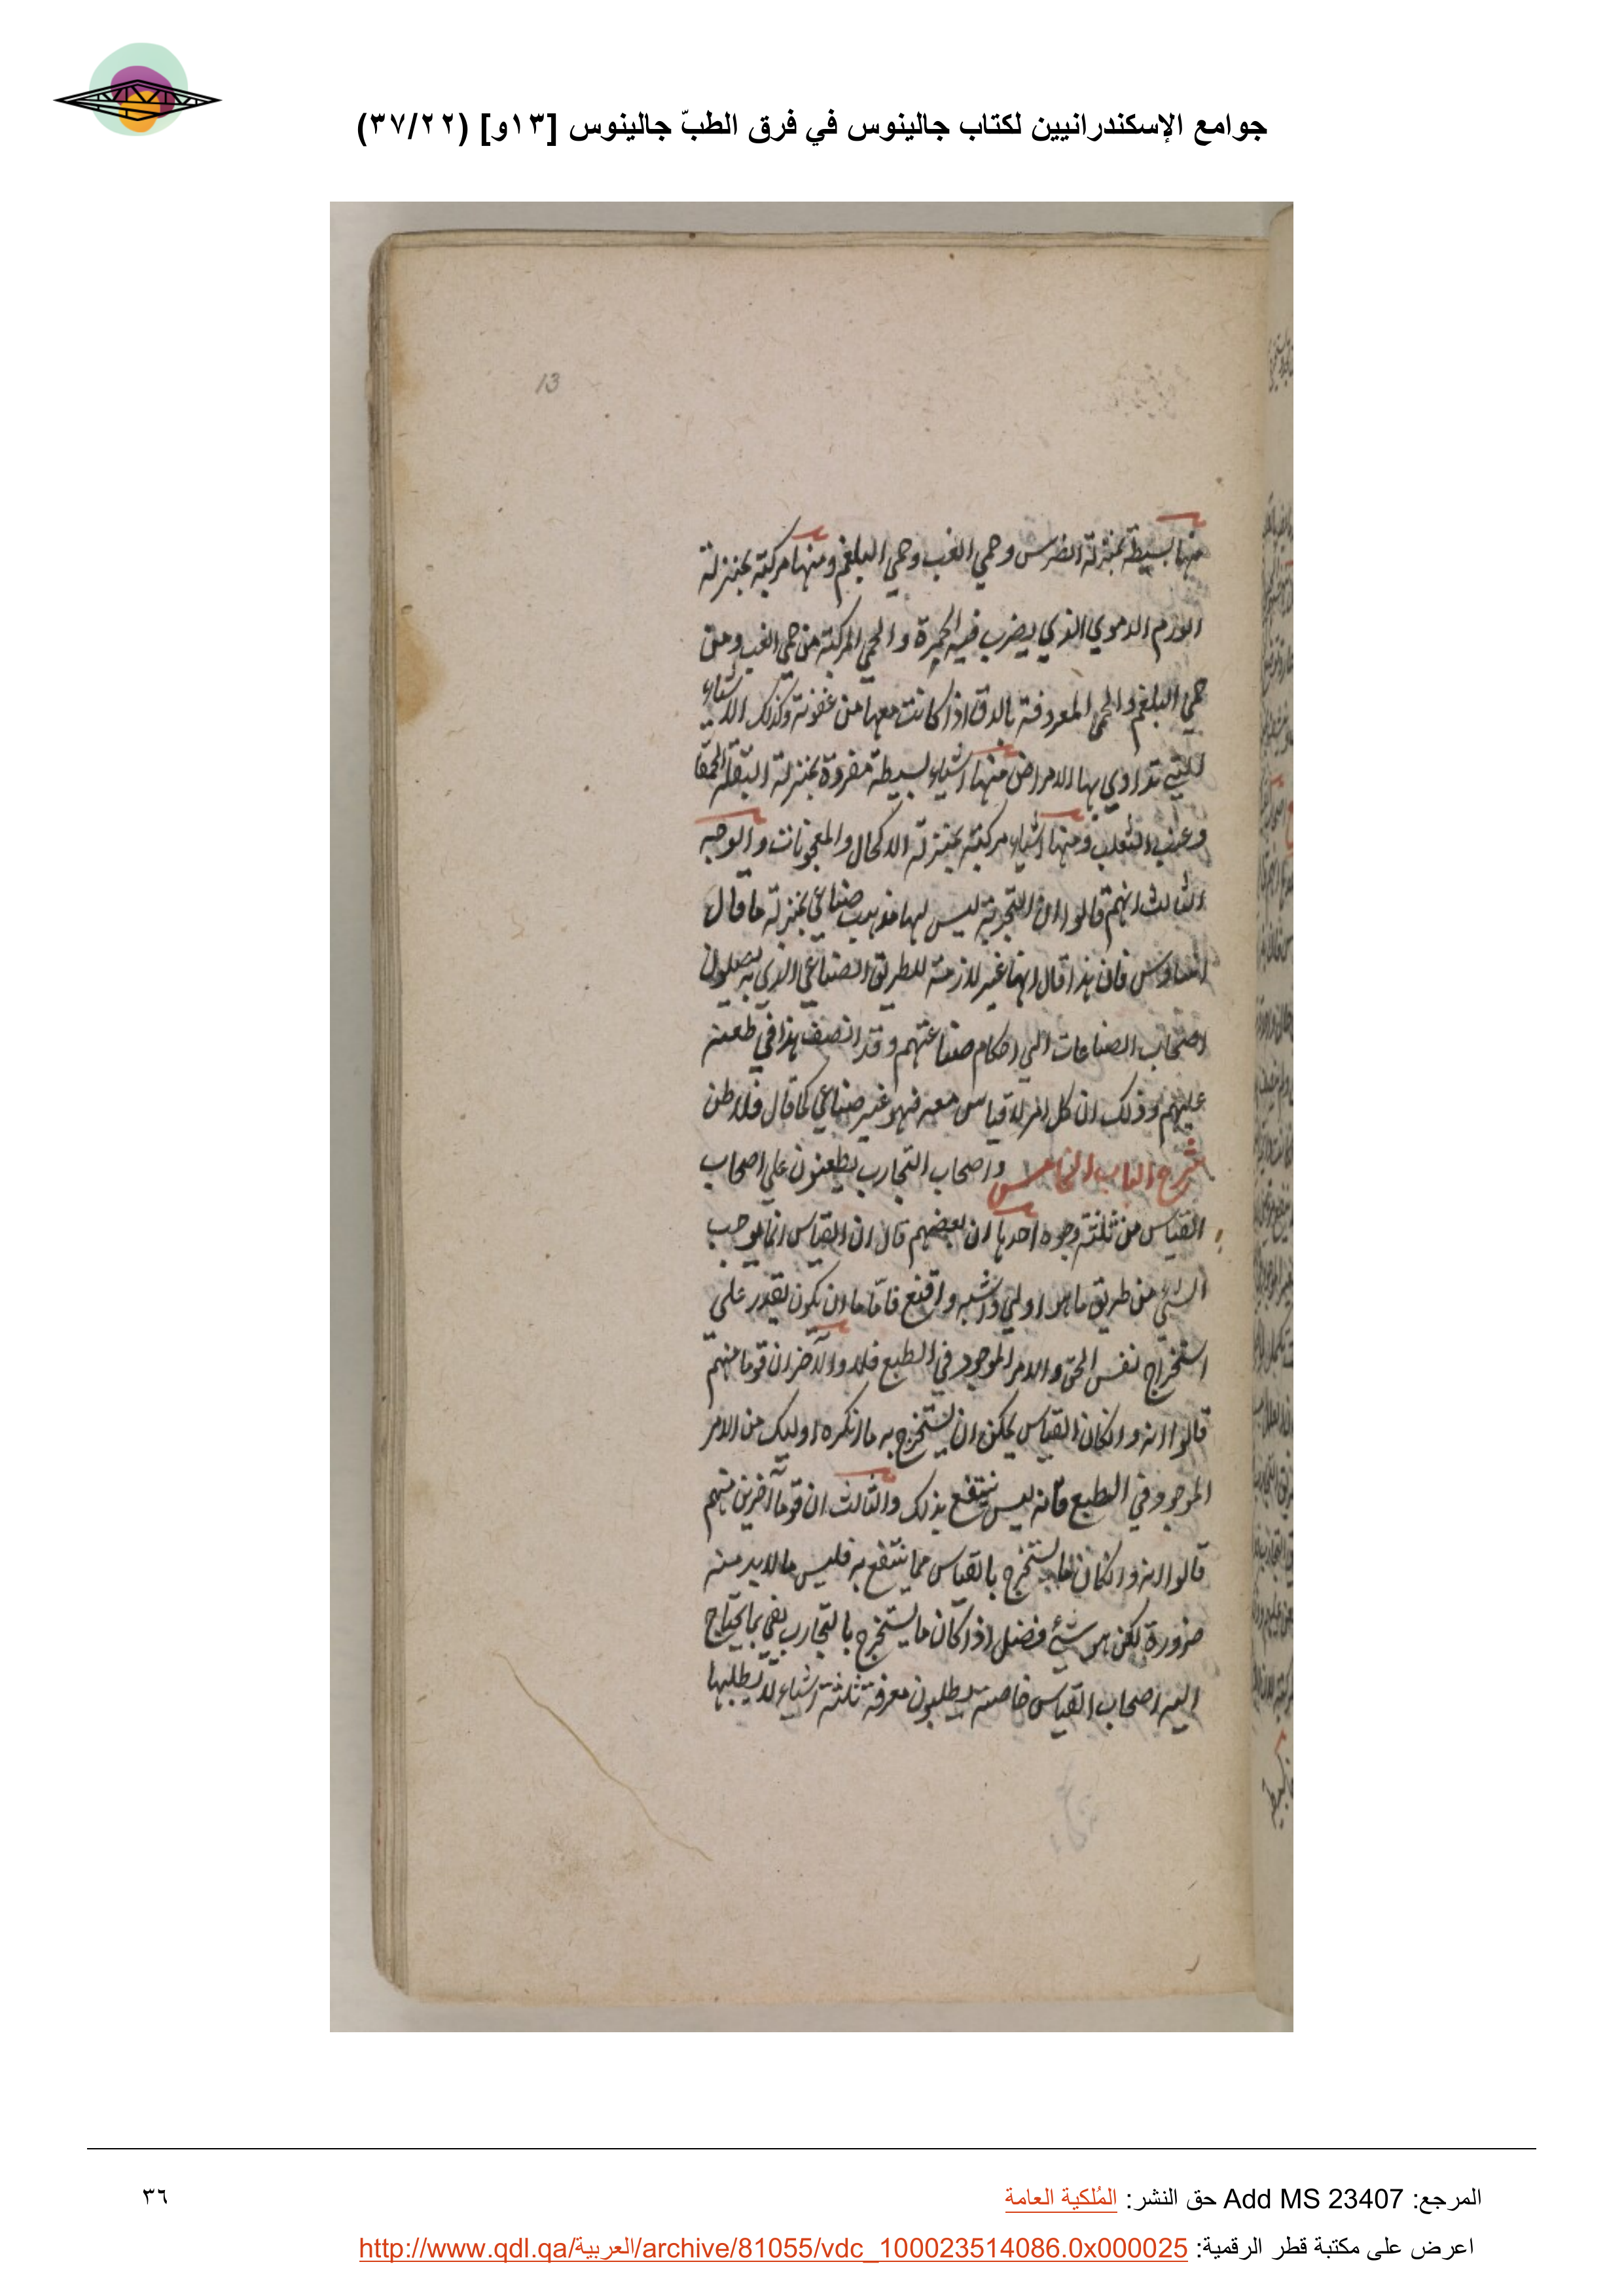 جوامع الإسكندرانيين لكتاب جالينوس في فرق الطبّ جالينوس [١٣و] (٣٧/٢٢)
13
منها بسيطة بمنزلة الضرس وحمي الغب وحمي البلغم ومنها مركبة بمنزلة
الورم الدموي الذي يضرب فيه الحمرة والحمي المركبة من حمي الغب ومن
حمي البلغم والحمي المعروفة بالدق اذا كانت معها من عفونة وكذلك الاشياء
التي تداوي بها الامراض منها اشياء بسيطة مفردة بمنزلة البقلة الحمقا
وعنب الثعلب ومنها اشياء مركبة بمنزلة الاكحال والمعجونات والوجه
الثالث انهم قالوا ان التجربة ليس لها مذهب صناعي بمنزلة ما قال
فان هذا قال انها غير لازمة للطريق الصناعي الذي به يصلون
اصحاب الصناعات الي احكام صناعتهم وقد انصف هذا في طعنه
عليهم وذلك ان كل امر لا قياس معه فهو غير صناعي كما قال فلاطن
شرح الباب الخامس واصحاب التجارب يطعنون علي اصحاب
القياس من ثلثة وجوه احدها ان بعضهم قال ان القياس انما يوجب
الشيء من طريق ما هو اولي واشبه واقنع فاما ما ان يكون يقدر علي
استخراج نفس الحق والامر الموجود في الطبع فلا والآخر ان قوما منهم
قالوا انه وان كان القياس يمكن ان يستخرج به ما انكره اوليك من الامر
الموجود في الطبع فانه ليس ينتفع بذلك والثالث ان قوما آخرين منهم
قالوا انه وان كان ما يستخرج بالقياس مما ينتفع به فليس مما لا بد منه
ضرورة لكن هو شيء فضل اذ كان ما يستخرج بالتجارب يفي بما يحتاج
اليه اصحاب القياس خاصة يطلبون معرفة ثلثة اشياء لا يطلبها
المرجع: Add MS 23407 حق النشر: المُلكية العامة
٣٦
اعرض على مكتبة قطر الرقمية: http://www.qdl.qa/العربية/archive/81055/vdc_100023514086.0x000025